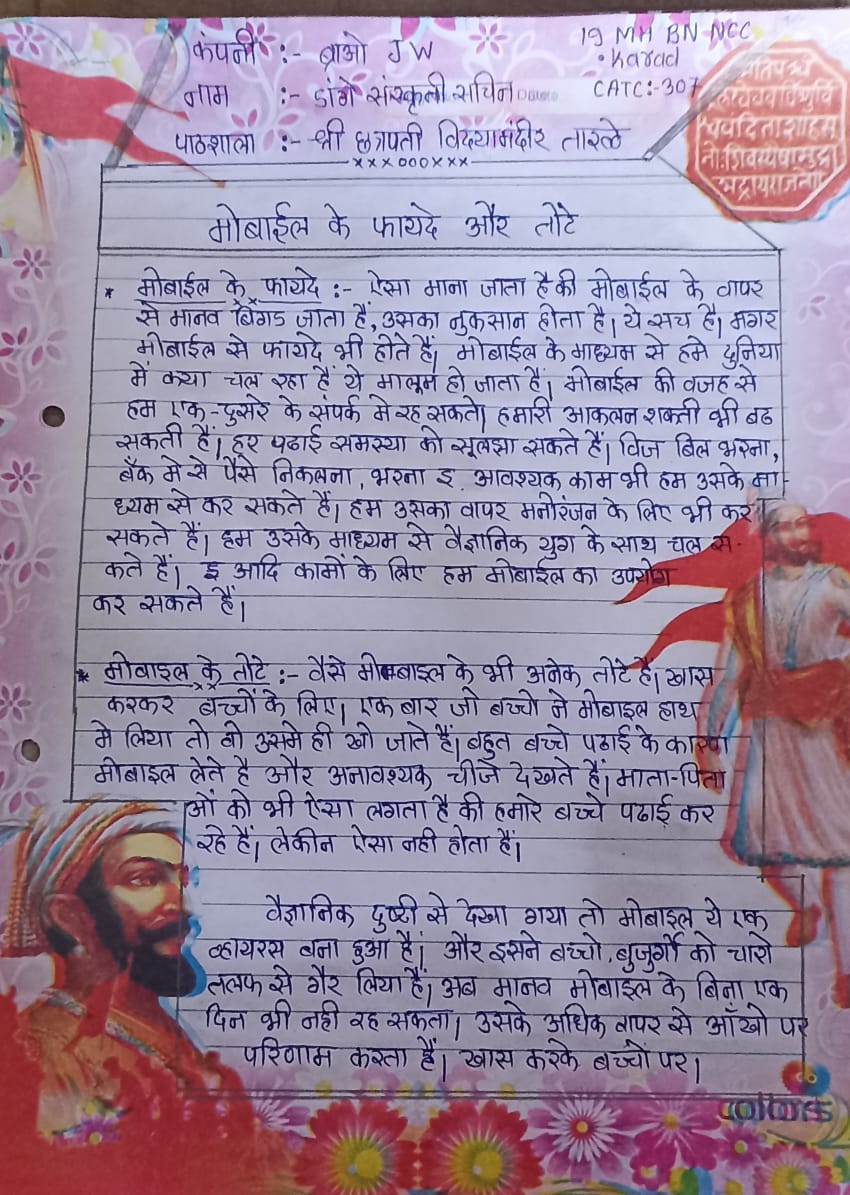 कंपनी :- ब्राओ JW
19 MH BN NCC
नाम :- डांगे संस्कृती सचिन
Karad
CATC:-307
पाठशाला :- श्री छत्रपती विद्यामंदीर तारळे
×××०००×××
मोबाईल के फायदे और तोटे
* मोबाईल के फायदे :- ऐसा माना जाता है की मोबाईल के वापर
से मानव बिगड जाता हैं, उसका नुकसान होता है। ये सच है। मगर
मोबाईल से फायदे भी होते हैं। मोबाईल के माध्यम से हमे दुनिया
में क्या चल रहा हैं ये मालूम हो जाता हैं। मोबाईल की वजह से
हम एक-दुसरे के संपर्क मे रह सकते। हमारी आकलन शक्ती भी बढ
सकती हैं। हर पढाई समस्या को सूलझा सकते हैं। विज बिल भरना,
बँक मे से पैसे निकलना, भरना इ. आवश्यक काम भी हम उसके मा-
ध्यम से कर सकते हैं। हम उसका वापर मनोरंजन के लिए भी कर
सकते हैं। हम उसके माध्यम से वैज्ञानिक युग के साथ चल स-
कते हैं। इ आदि कामों के लिए हम मोबाईल का उपयोग
कर सकते हैं।
* मोबाइल के तोटे :- वैसे मोबाइल के भी अनेक तोटे है। खास
करकर बच्चों के लिए। एक बार जो बच्चो ने मोबाइल हाथ
मे लिया तो वो उसमे ही खो जाते हैं। बहुत बच्चे पढाई के कारण
मोबाइल लेते है और अनावश्यक चीजे देखते हैं। माता-पिता
ओं को भी ऐसा लगता है की हमारे बच्चे पढाई कर
रहे हैं। लेकीन ऐसा नही होता हैं।
वैज्ञानिक दुष्टी से देखा गया तो मोबाइल ये एक
व्हायरस बना हुआ हैं। और इसने बच्चो, बुजुर्गो को चारो
तलफ से गैर लिया हैं। अब मानव मोबाईल के बिना एक
दिन भी नही रह सकता। उसके अधिक वापर से आँखो पर
परिणाम करता हैं। खास करके बच्चों पर।